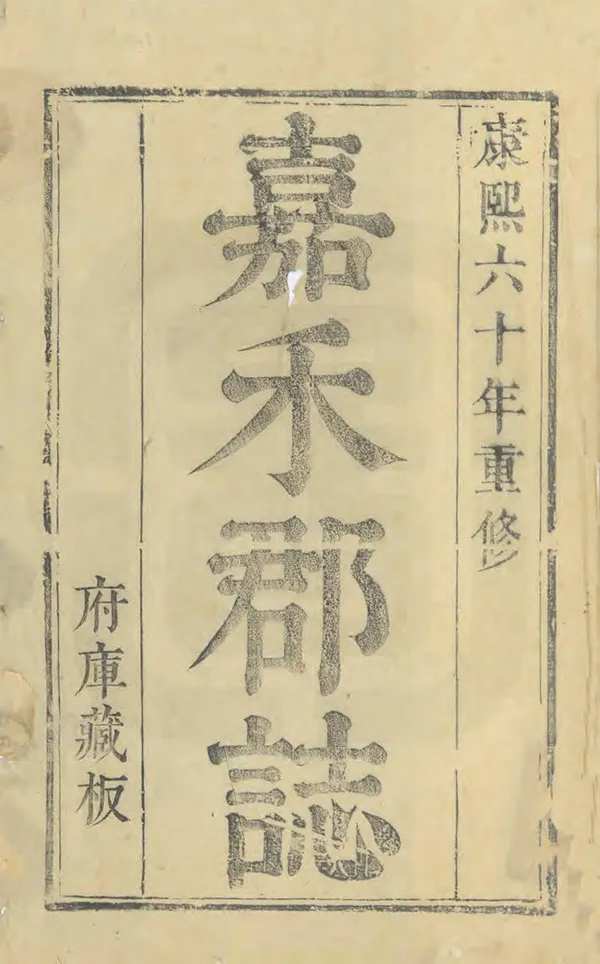 康熙六十年重修
嘉禾郡誌
府庫藏板